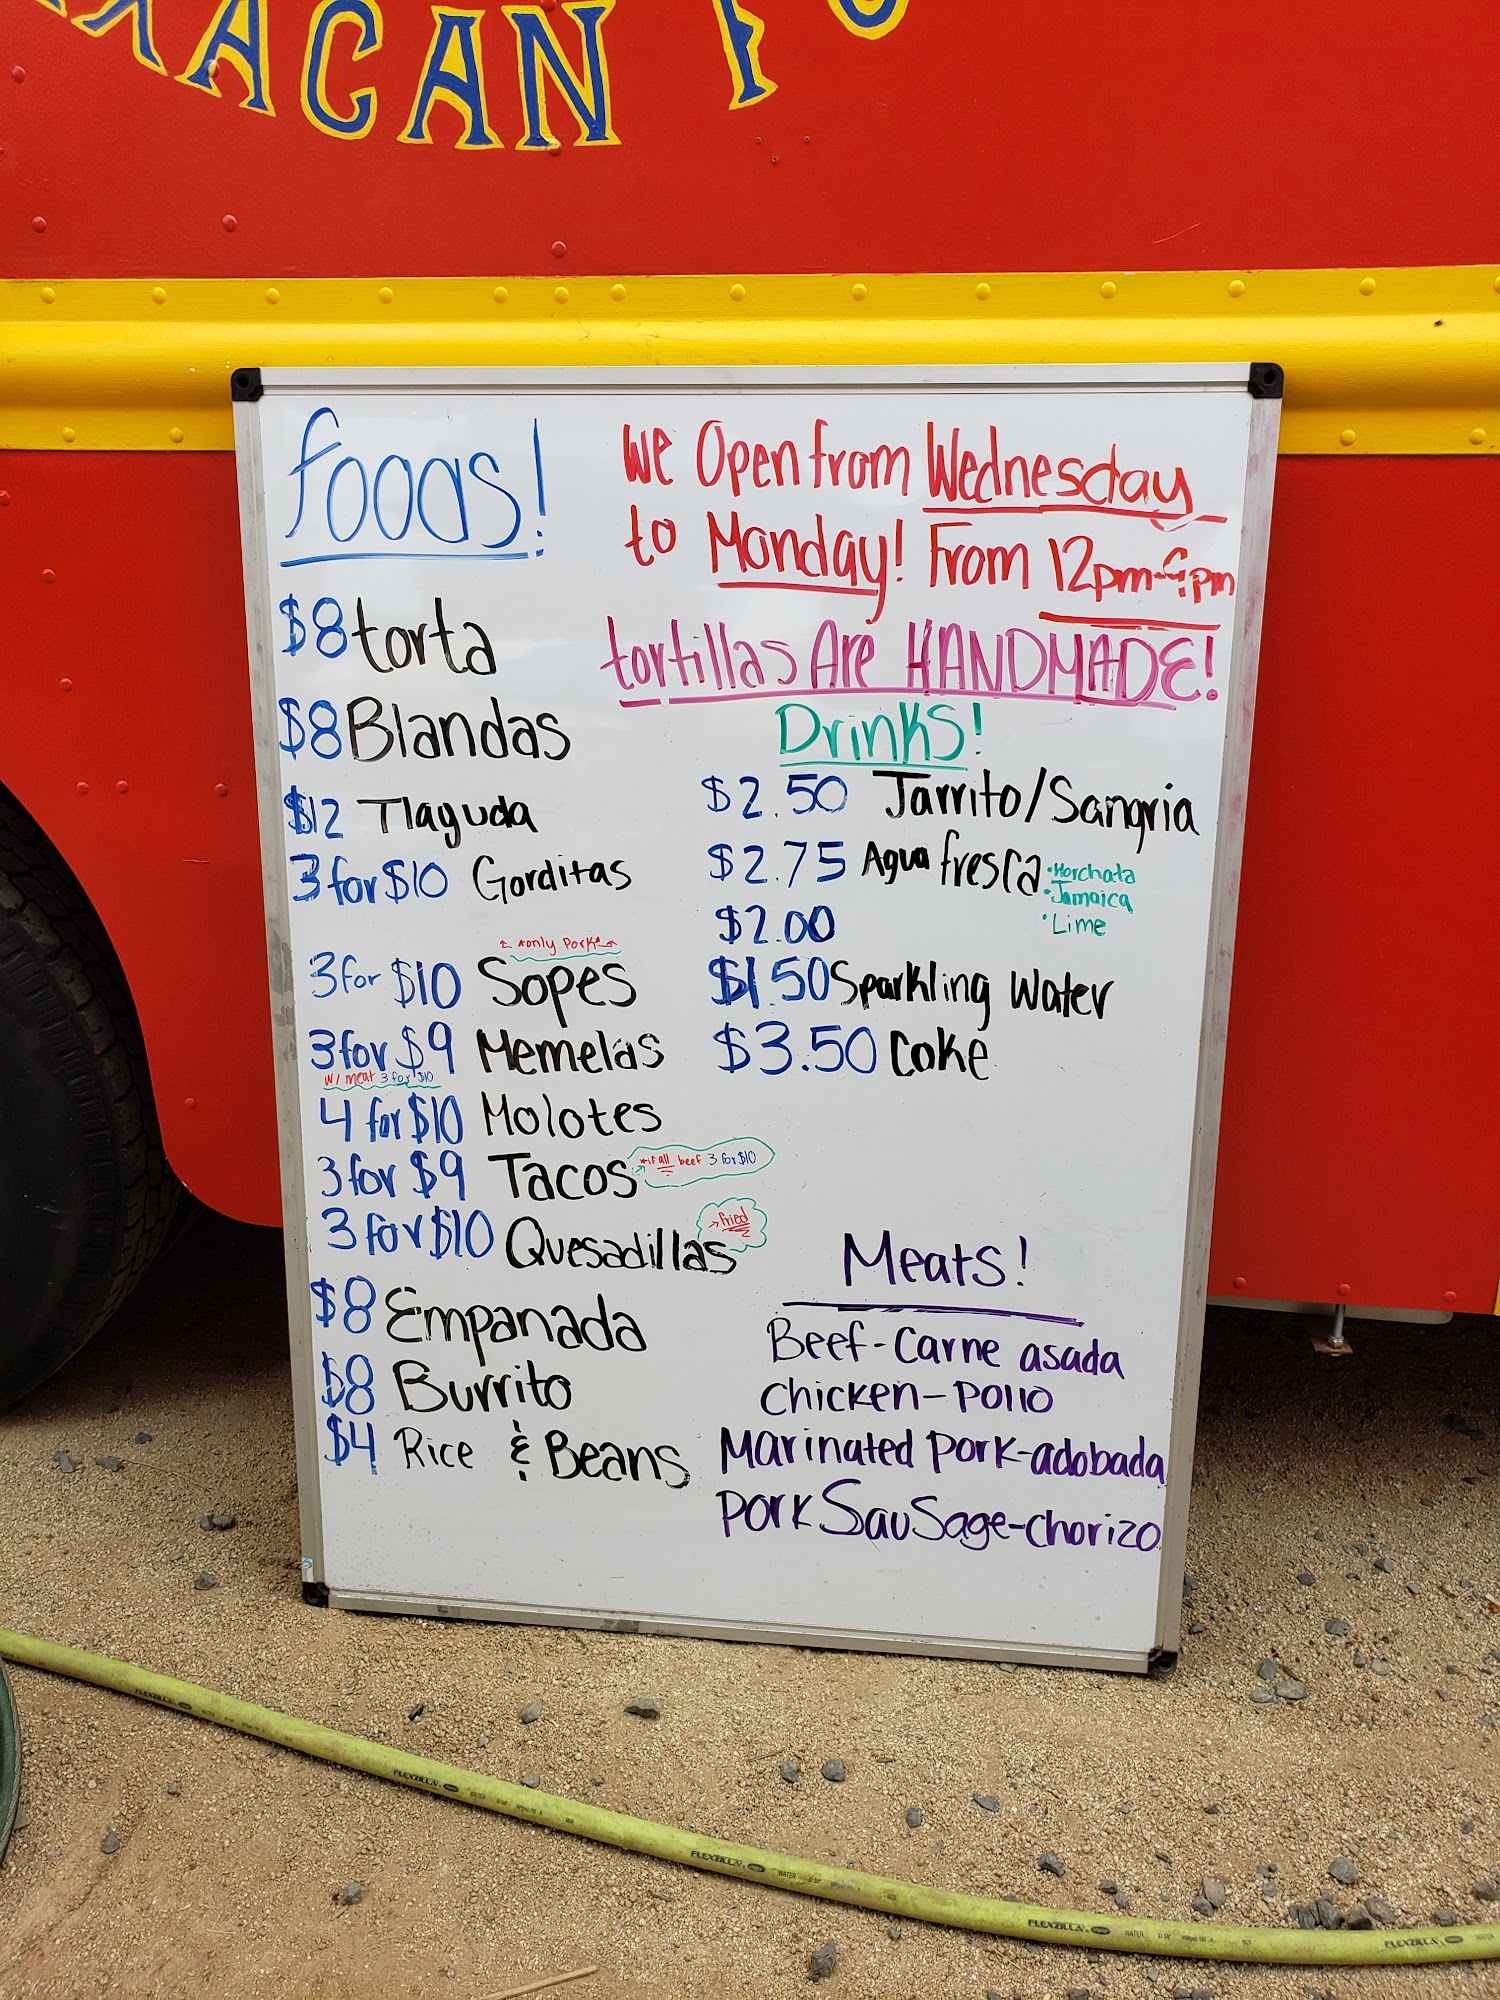 AXACAN
foods!
We Open from Wednesday
to Monday! From 12pm-9pm
tortillas Are HANDMADE!
$8 torta
$8 Blandas
$12 Tlayuda
3 for $10 Gorditas
*only Pork*
3 for $10 Sopes
3 for $9 Memelas
w/ meat 3 for $10
4 for $10 Molotes
3 for $9 Tacos *if all beef 3 for $10
3 for $10 Quesadillas → fried
$8 Empanada
$8 Burrito
$4 Rice & Beans
Drinks!
$2.50 Jarrito/Sangria
$2.75 Agua fresca
•Horchata
•Jamaica
•Lime
$2.00
$1.50 Sparkling Water
$3.50 Coke
Meats!
Beef-Carne asada
Chicken-Pollo
Marinated Pork-adobada
Pork Sausage-chorizo
FLEXZILLA WATER
FLEXZILLA
FLEXZILLA WATER
FLEXZILLA WATER
FLEXZILLA